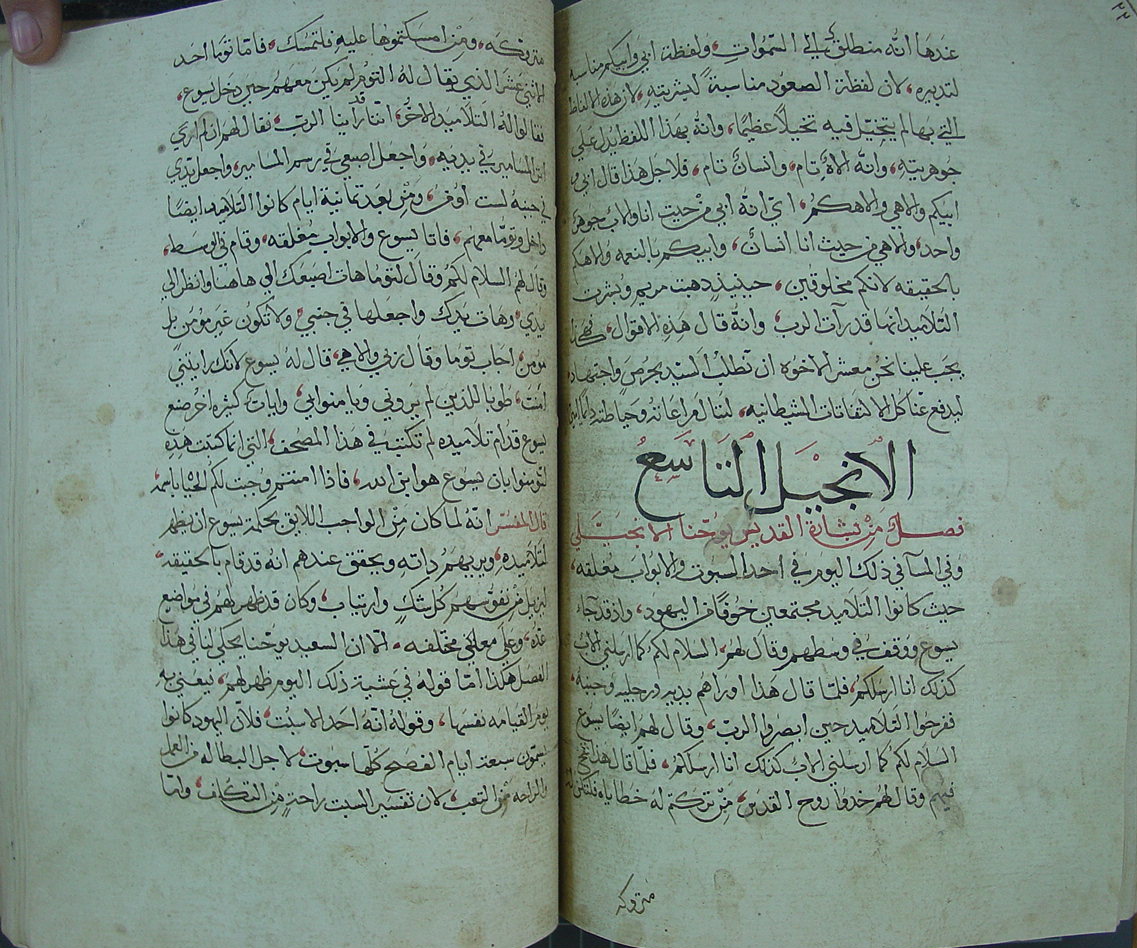 ٢٢
عندها انه منطلق الي السموات ولفظة ابي وابيكم مناسبه
لتدبيره، لان لفظة الصعود مناسبة لبشريته، لان هذه الالفاظ
التي بها لم يتخيل فيه تخيلاً عظيماً، وانه بهذا اللفظ يدل علي
جوهريته، وانه الاه تام، وانسان تام، فلاجل هذا قال ابي و
ابيكم والاهي والاهكم، اي انه ابي من حيث انا والاب جوهر
واحد، والاهي من حيث انا انسان، وابيكم بالنعمه والاهكم
بالحقيقه لانكم مخلوقين، حينيذٍ ذهبت مريم وبشرت
التلاميذ انها قد رات الرب، وانه قال هذه الاقوال، فهكذا
يجب علينا نحن معشر الاخوه ان نطلب السيد بحرص واجتهاد
ليدفع عنا كل الالتفاتات الشيطانيه، لننال مراعاته وحياطته
الانجيل التاسع
فصل من بشارة القديس يوحنا الانجيلي
وفي المسآ في ذلك اليوم في احد السبوت والابواب مغلقه،
حيث كانوا التلاميذ مجتمعين خوفاً من اليهود، واذ قد جاء
يسوع ووقف في وسطهم وقال لهم، السلام لكم كما ارسلني الاب
كذلك انا ارسلكم، فلما قال هذا اوراهم يديه ورجليه وجنبه،
ففرحوا التلاميذ حين ابصروا الرب، وقال لهم ايضاً يسوع
السلام لكم كما ارسلني الاب كذلك انا ارسلكم، فلما قال هذا نفخ
فيهم وقال لهم خدوا روح القدس، من تركتم له خطاياه فلتكن له
متروكه
متروكه، ومن امسكتموها عليه فلتمسك، فاما توما احد
الاثني عشر الذي يقال له التوم لم يكن معهم حين دخل يسوع،
فقالوا له التلاميذ الاخر، اننا قد راينا الرب، فقال لهم ان لم اري
اثر المسامير في يديه، واجعل اصبعي في رسم المسامير، واجعل يدي
في جنبه لست اومن، ومن بعد تمانية ايام كانوا التلاميذ ايضاً
داخل وتوما معهم، فاتا يسوع والابواب مغلقه، وقام في الوسط،
وقال لهم السلام لكم، وقال لتوما هات اصبعك الي هاهنا وانظر الي
يدي، وهات يدك واجعلها في جنبي، ولا تكون غير مومن بل
مومن، اجاب توما وقال ربي والاهي، قال له يسوع لانك رايتني
امنت، طوبا للذين لم يروني ويامنوا بي، وايات كثيره اخر صنع
يسوع قدام تلاميذه لم تكتب في هذا المصحف، التي انما كتبت هذه
لتومنوا بان يسوع هو ابن الله، فاذا امنتم وجبت لكم الحياة باسمه
قال المفسر انه لما كان من الواجب اللايق بحكمة يسوع ان يظهر
لتلاميذه، ويريهم داته ويحقق عندهم انه قد قام بالحقيقة،
ليزيل من نفوسهم كل شك وارتياب، وكان قد ظهر لهم في مواضع
عده، وعلي معاني مختلفه، الا ان السعيد يوحنا يحكي لنا في هذا
الفصل هكذا، اما قوله في عشية ذلك اليوم ظهر لهم، فيعني به
يوم القيامه نفسها، وقوله انه احد الاسبت، فلان اليهود كانوا
يسمون سبعة ايام الفصح كلها سبوت، لاجل البطاله من العمل
والراحه من التعب، لان تفسير السبت راحة من التكلف، ولما